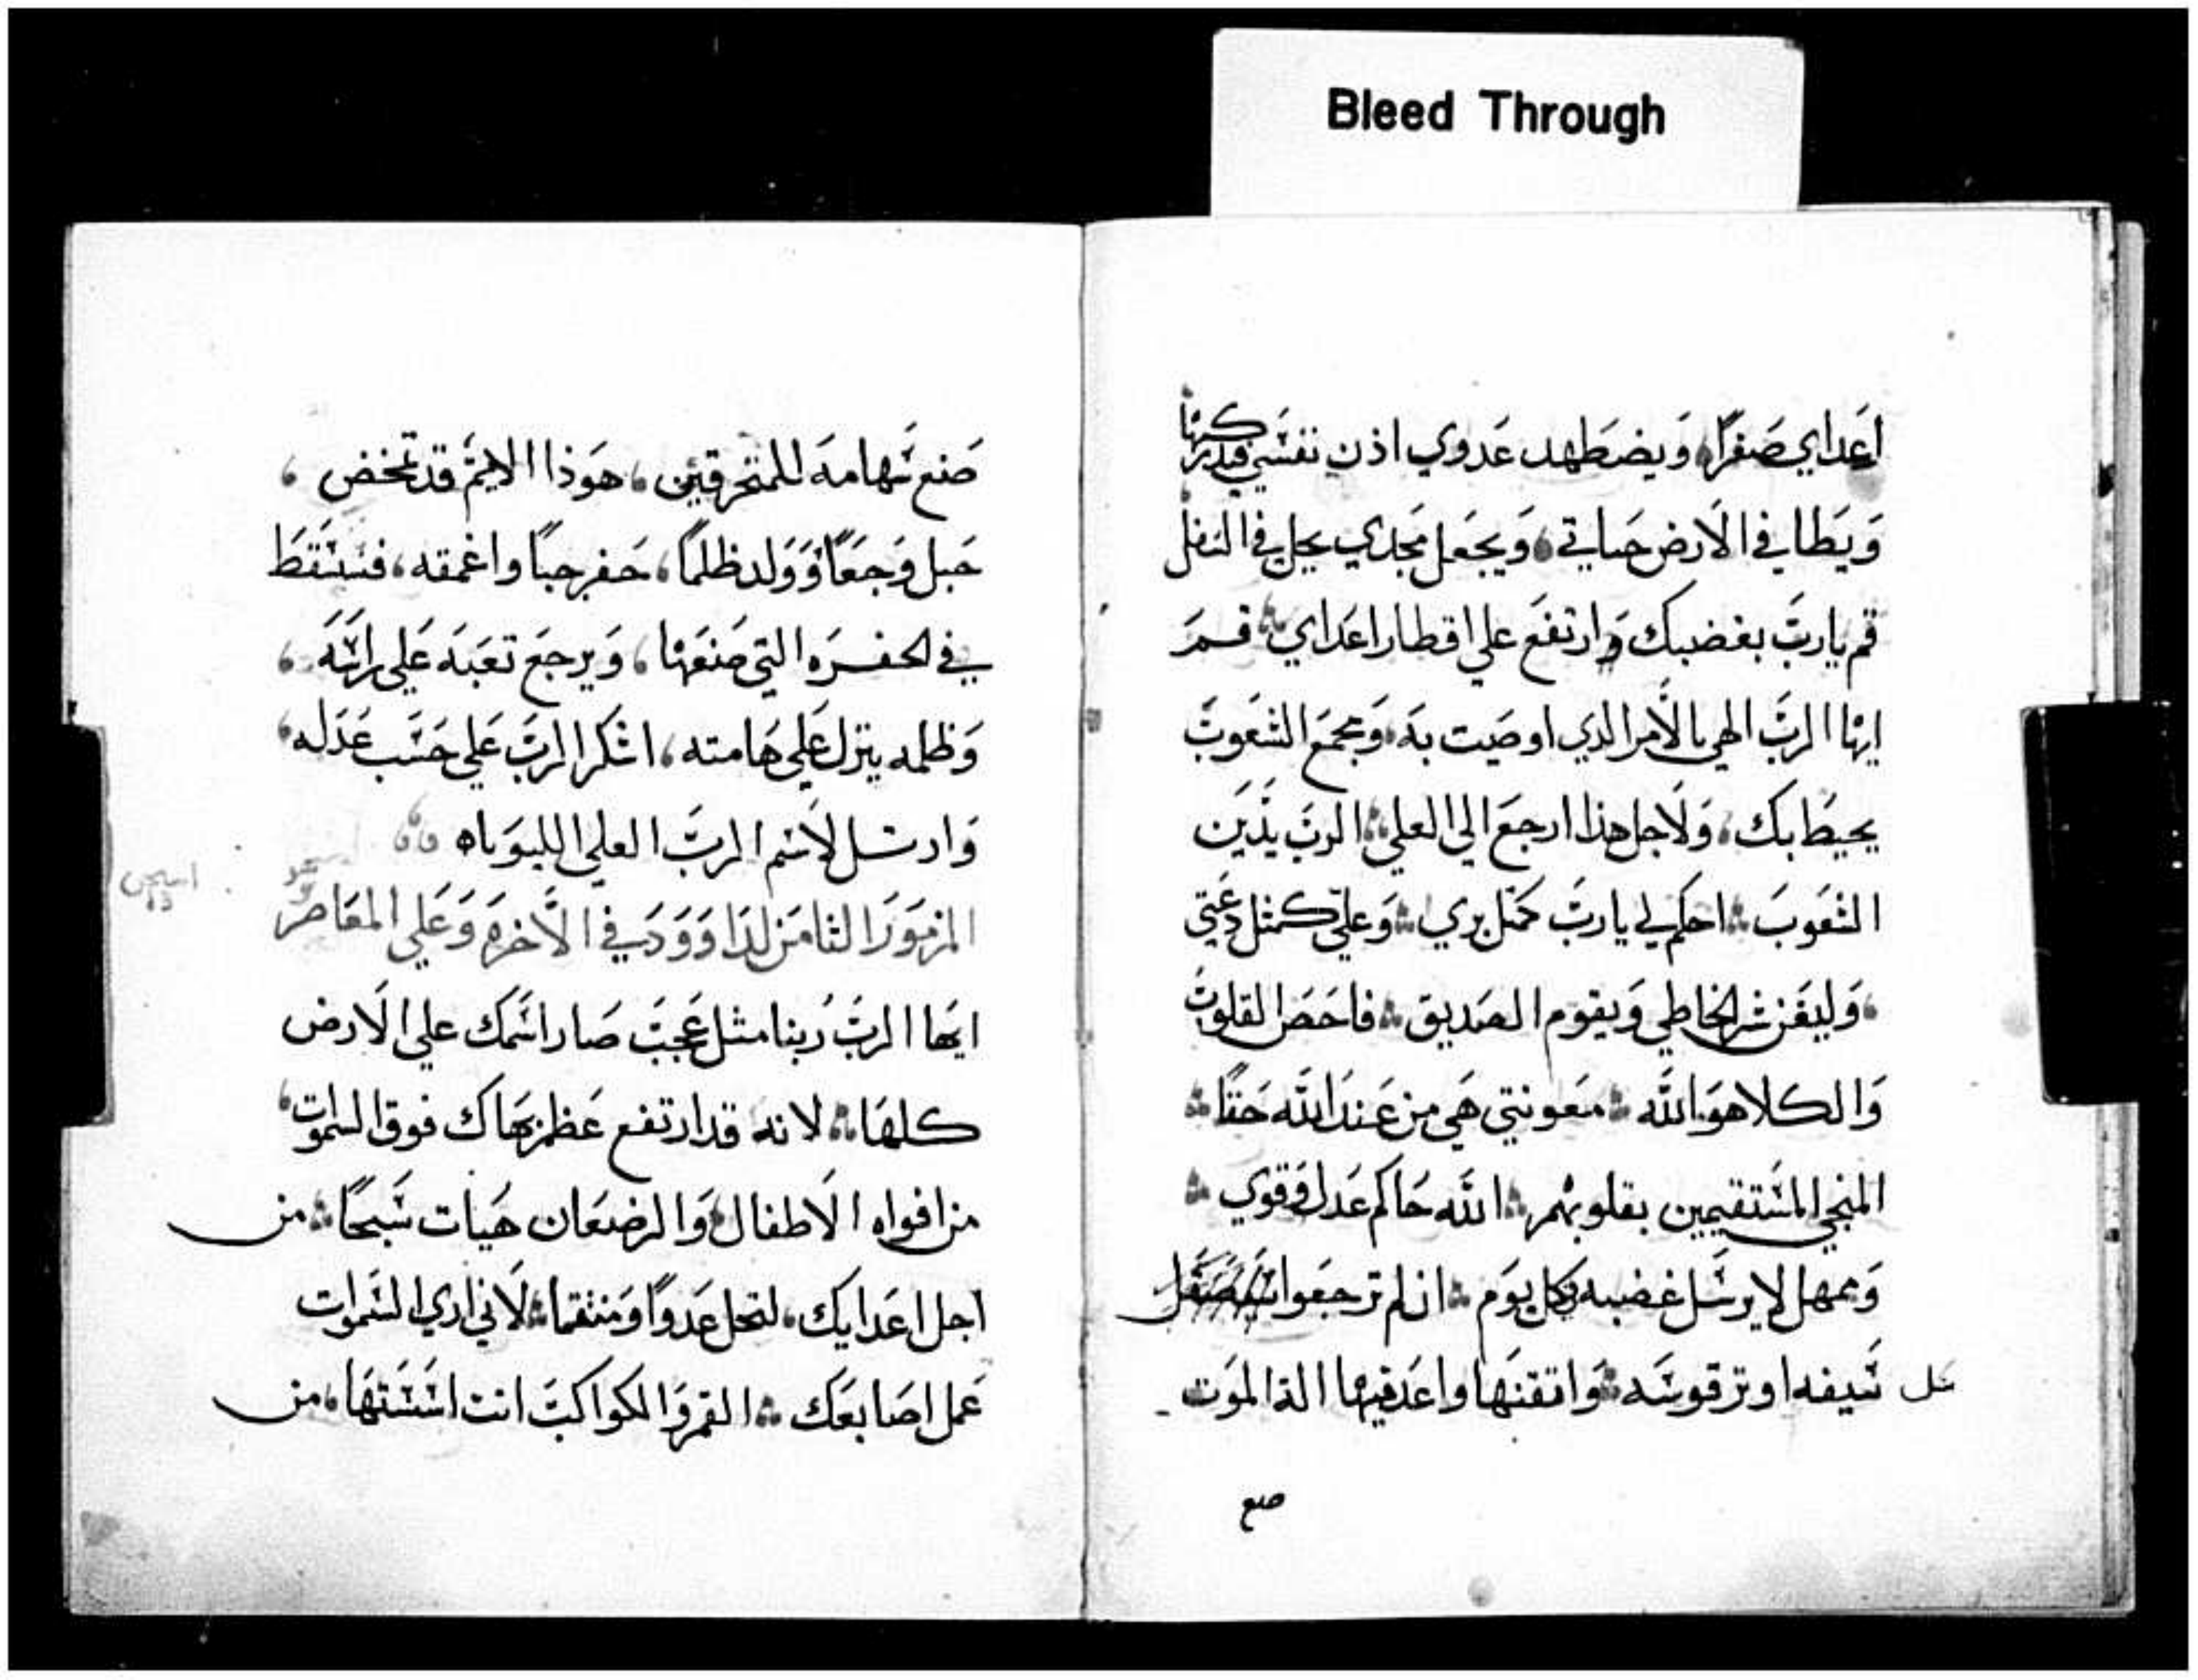 Bleed Through
اعداي صفرًا، ويضطهد عدوي اذن نفسي فيدركها
ويطا في الارض حياتي، ويجعل مجدي يحل في التفل
قم يارب بغضبك وارتفع علي اقطار اعداي، قم
ايها الرب الهي بالامر الذي اوصيت به، ومجمع الشعوب
يحيط بك، ولاجل هذا ارجع الي العلي، الرب يدين
الشعوب، احكم لي يارب كمثل بري، وعلي كمثل دعتي
، وليفن شر الخاطي ويقوم الصديق، فاحص القلوب
والكلا هو الله، معونتي هي من عند الله حقًا
المنجي المستقيمين بقلوبهم، الله حاكم عدل وقوي
وممهل لا يرسل غضبه كل يوم، ان لم ترجعوا
سيفه اوتر قوسه، واتقنها واعد فيها الة الموت
صنع
صنع سهامه للمتحرقين، هوذا الاثم قد تمخض،
حبل وجعًا وولد ظلمًا، حفر جبًا واعمقه، فسيسقط
في الحفره التي صنعها، ويرجع تعبه علي راسه،
وظلمه ينزل علي هامته، اشكر الرب علي حسب عدله،
وارتل لاسم الرب العلي الليوياه
المزمور الثامن لداوود في الاخره وعلي المعاصر
ايها الرب ربنا مثل عجب صار اسمك علي الارض
كلها، لانه قد ارتفع عظم بهاك فوق السموات،
من افواه الاطفال والرضعان هيات سبحًا، من
اجل اعدايك، لتحل عدوًا ومنتقما، لاني اري السموات
عمل اصابعك، القمر والكواكب انت اسستها، من